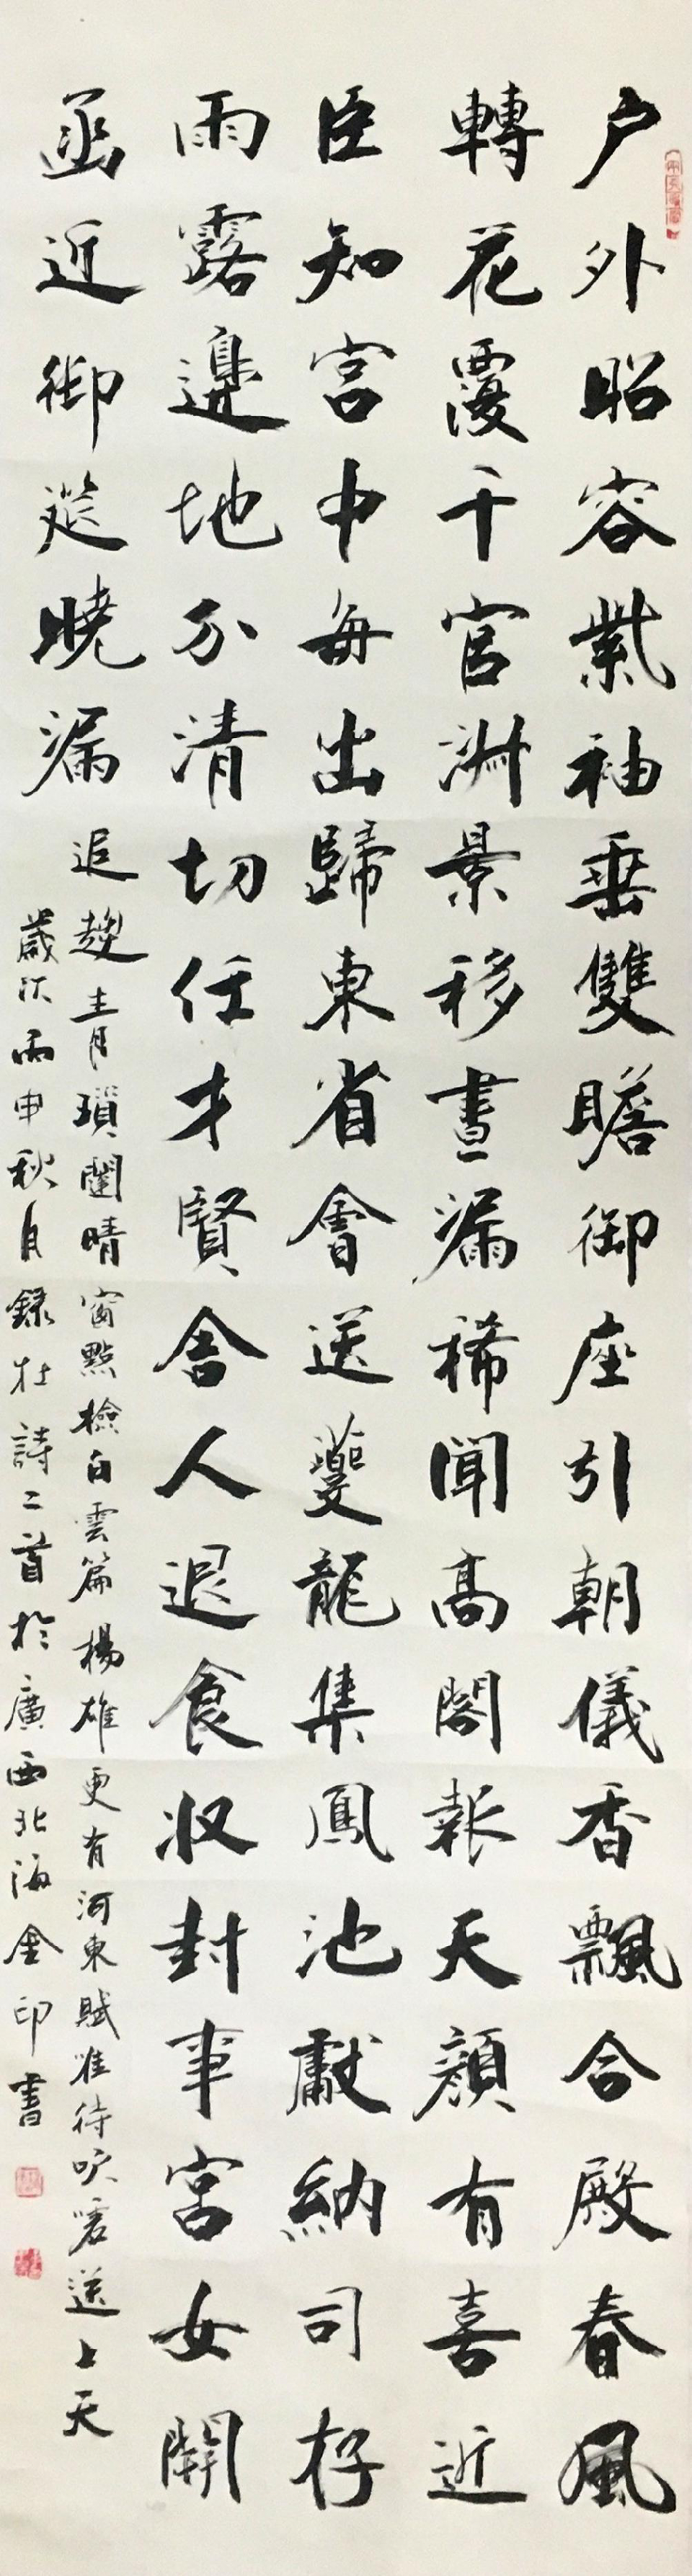 户外昭容紫袖垂雙瞻御座引朝儀香飄合殿春風
轉花覆千官淑景移晝漏稀聞高閣報天顔有喜近
臣知宫中每出歸東省會送夔龍集鳳池獻納司存
雨露邊地分清切任才賢舍人退食收封事宫女開
函近御筵曉漏
追趨青瑣闥晴窗點檢白雲篇楊雄更有河東賦唯待吹嘘送上天
歲次丙申秋月錄杜詩二首於廣西北海金印書